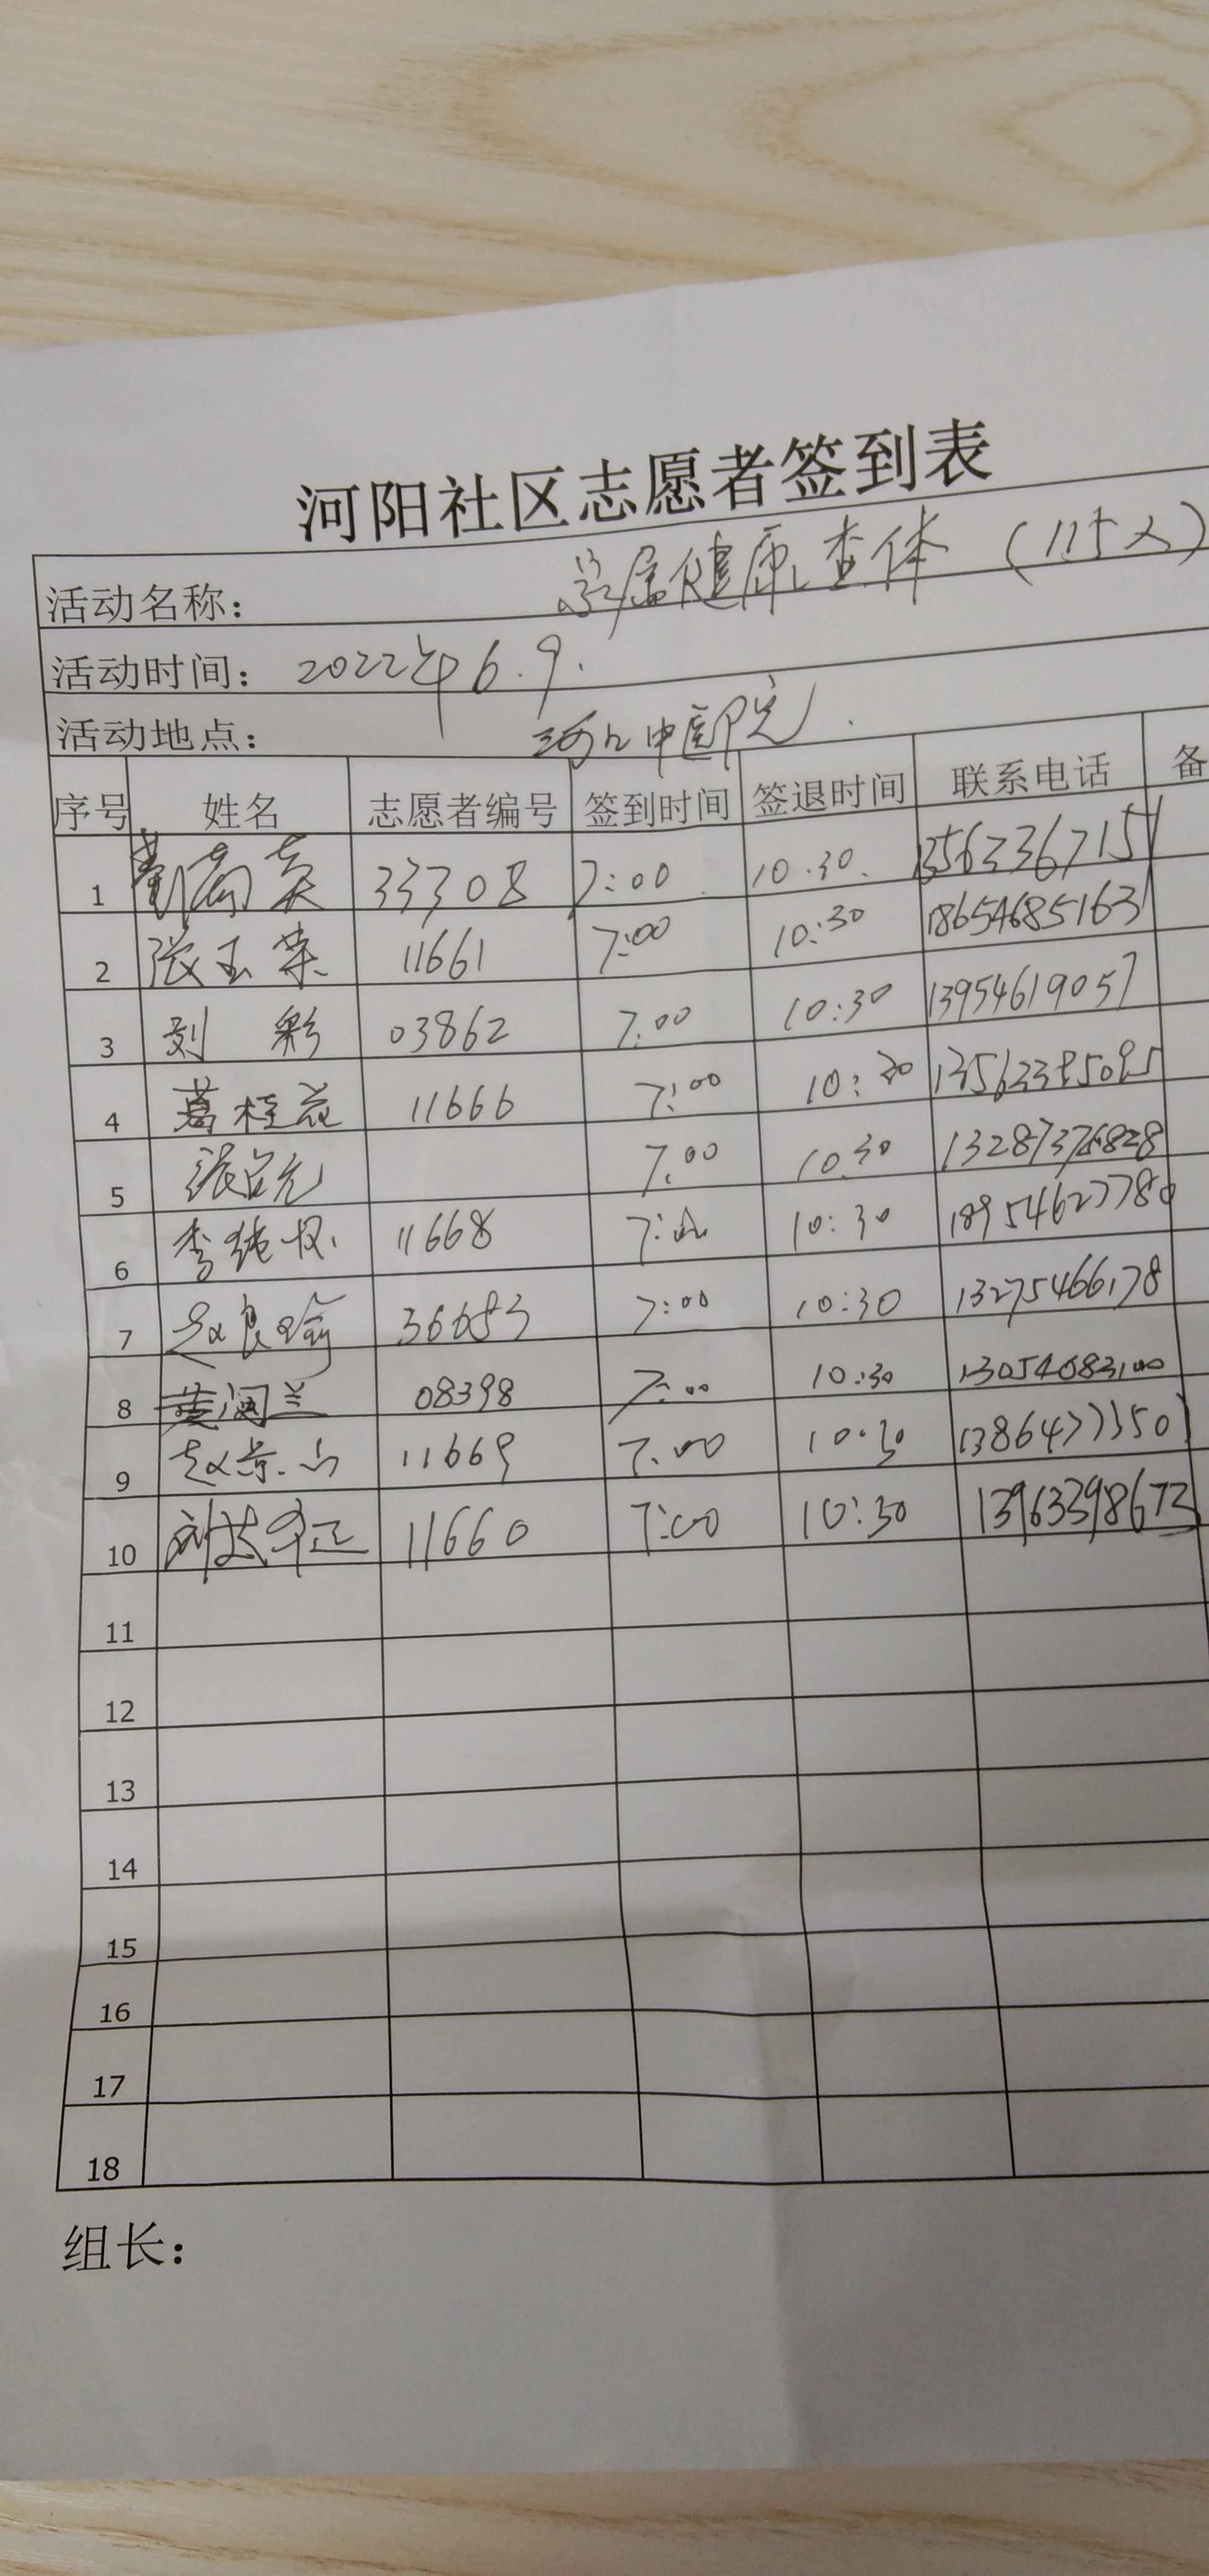 河阳社区志愿者签到表
活动名称: 家属健康查体 (115人)
活动时间: 2022年6.9.
活动地点: 河口中医院
序号 姓名 志愿者编号 签到时间 签退时间 联系电话 备
1 33708 7:00 10.30 13563367151
2 张玉荣 11661 7:00 10:30 18654685163
3 刘彩 03862 7:00 10:30 13954619057
4 葛桂花 11666 7:00 10:30
5 7:00 10:30 13287376828
6 李艳 11668 7:00 10:30 18954627780
7 赵良 7:00 10:30 13275466178
8 黄润兰 08398 7:00 10:30 13054083100
9 赵景山 11669 7:00 10:30
10 刘 11660 7:00 10:30 13963398673
11
12
13
14
15
16
17
18
组长: